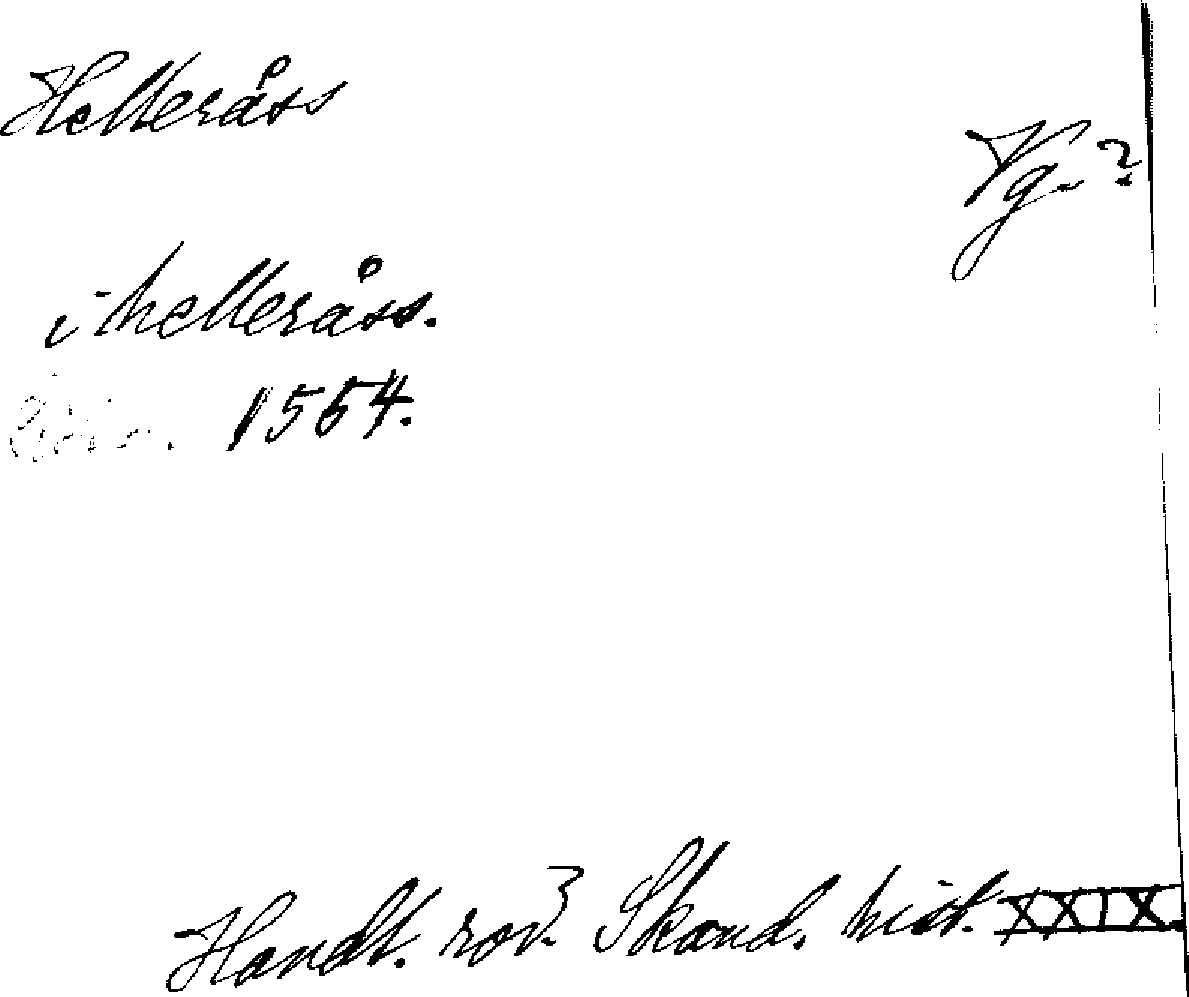 Helleråss
Vg. ?
i helleråss.
1564.
Handl. rör. Skand. hist. XXIX.